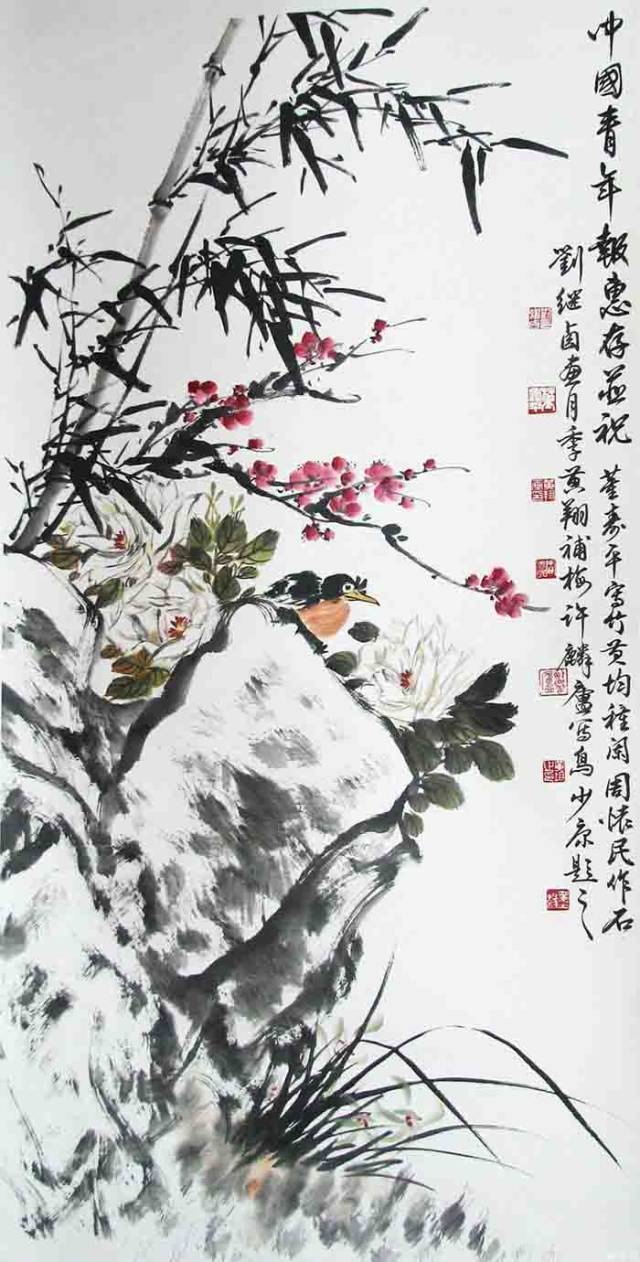 中國青年報惠存並祝 董壽平寫竹黃均種蘭周懷民作石
劉继卣畫月季黃翔補梅许麟廬寫鳥少康题之